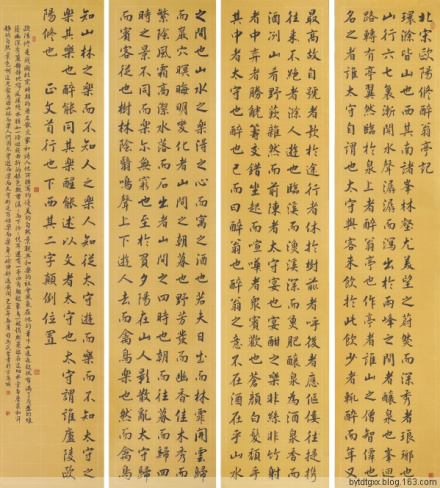 北宋歐陽修醉翁亭記
環滁皆山也其西南諸峯林壑尤美望之蔚然而深秀者琅琊也
山行六七里漸聞水聲潺潺而瀉出於兩峰之間者釀泉也峯迴
路轉有亭翼然臨於泉上者醉翁亭也作亭者誰山之僧智僊也
名之者誰太守自謂也太守與客來飲於此飲少輒醉而年又
最高故自號者歌於途行者休於樹前者呼後者應傴僂提攜
往來不絕者滁人遊也臨溪而漁溪深而魚肥釀泉為酒泉香而
酒洌山肴野蔌雜然而前陳者太守宴也宴酣之樂非絲非竹射
者中弈者勝觥籌交錯坐起而諠嘩者衆賓歡也蒼顏白髮頹乎
其中者太守也醉已而曰醉翁也醉翁之意不在酒在乎山水
之間也山水之樂得之心而寓之酒也若夫日出而林霏開雲歸
而巖穴暝晦明變化者山間之朝暮也野芳發而幽香佳木秀而
繁陰風霜高潔水落而石出者山間之四時也朝而往暮而歸四
時之景不同而樂亦無窮也至於負夕陽在山人影散亂太守歸
而賓客從也樹林陰翳鳴聲上下遊人去而禽鳥樂也然而禽鳥
知山林之樂而不知人之樂人知從太守遊而樂而不知太守之
樂其樂也醉能同其樂醒能述以文者太守也太守謂誰廬陵歐
陽修也 正文首行也下西其二字顛倒位置
bytdtgxx.blog.163.com